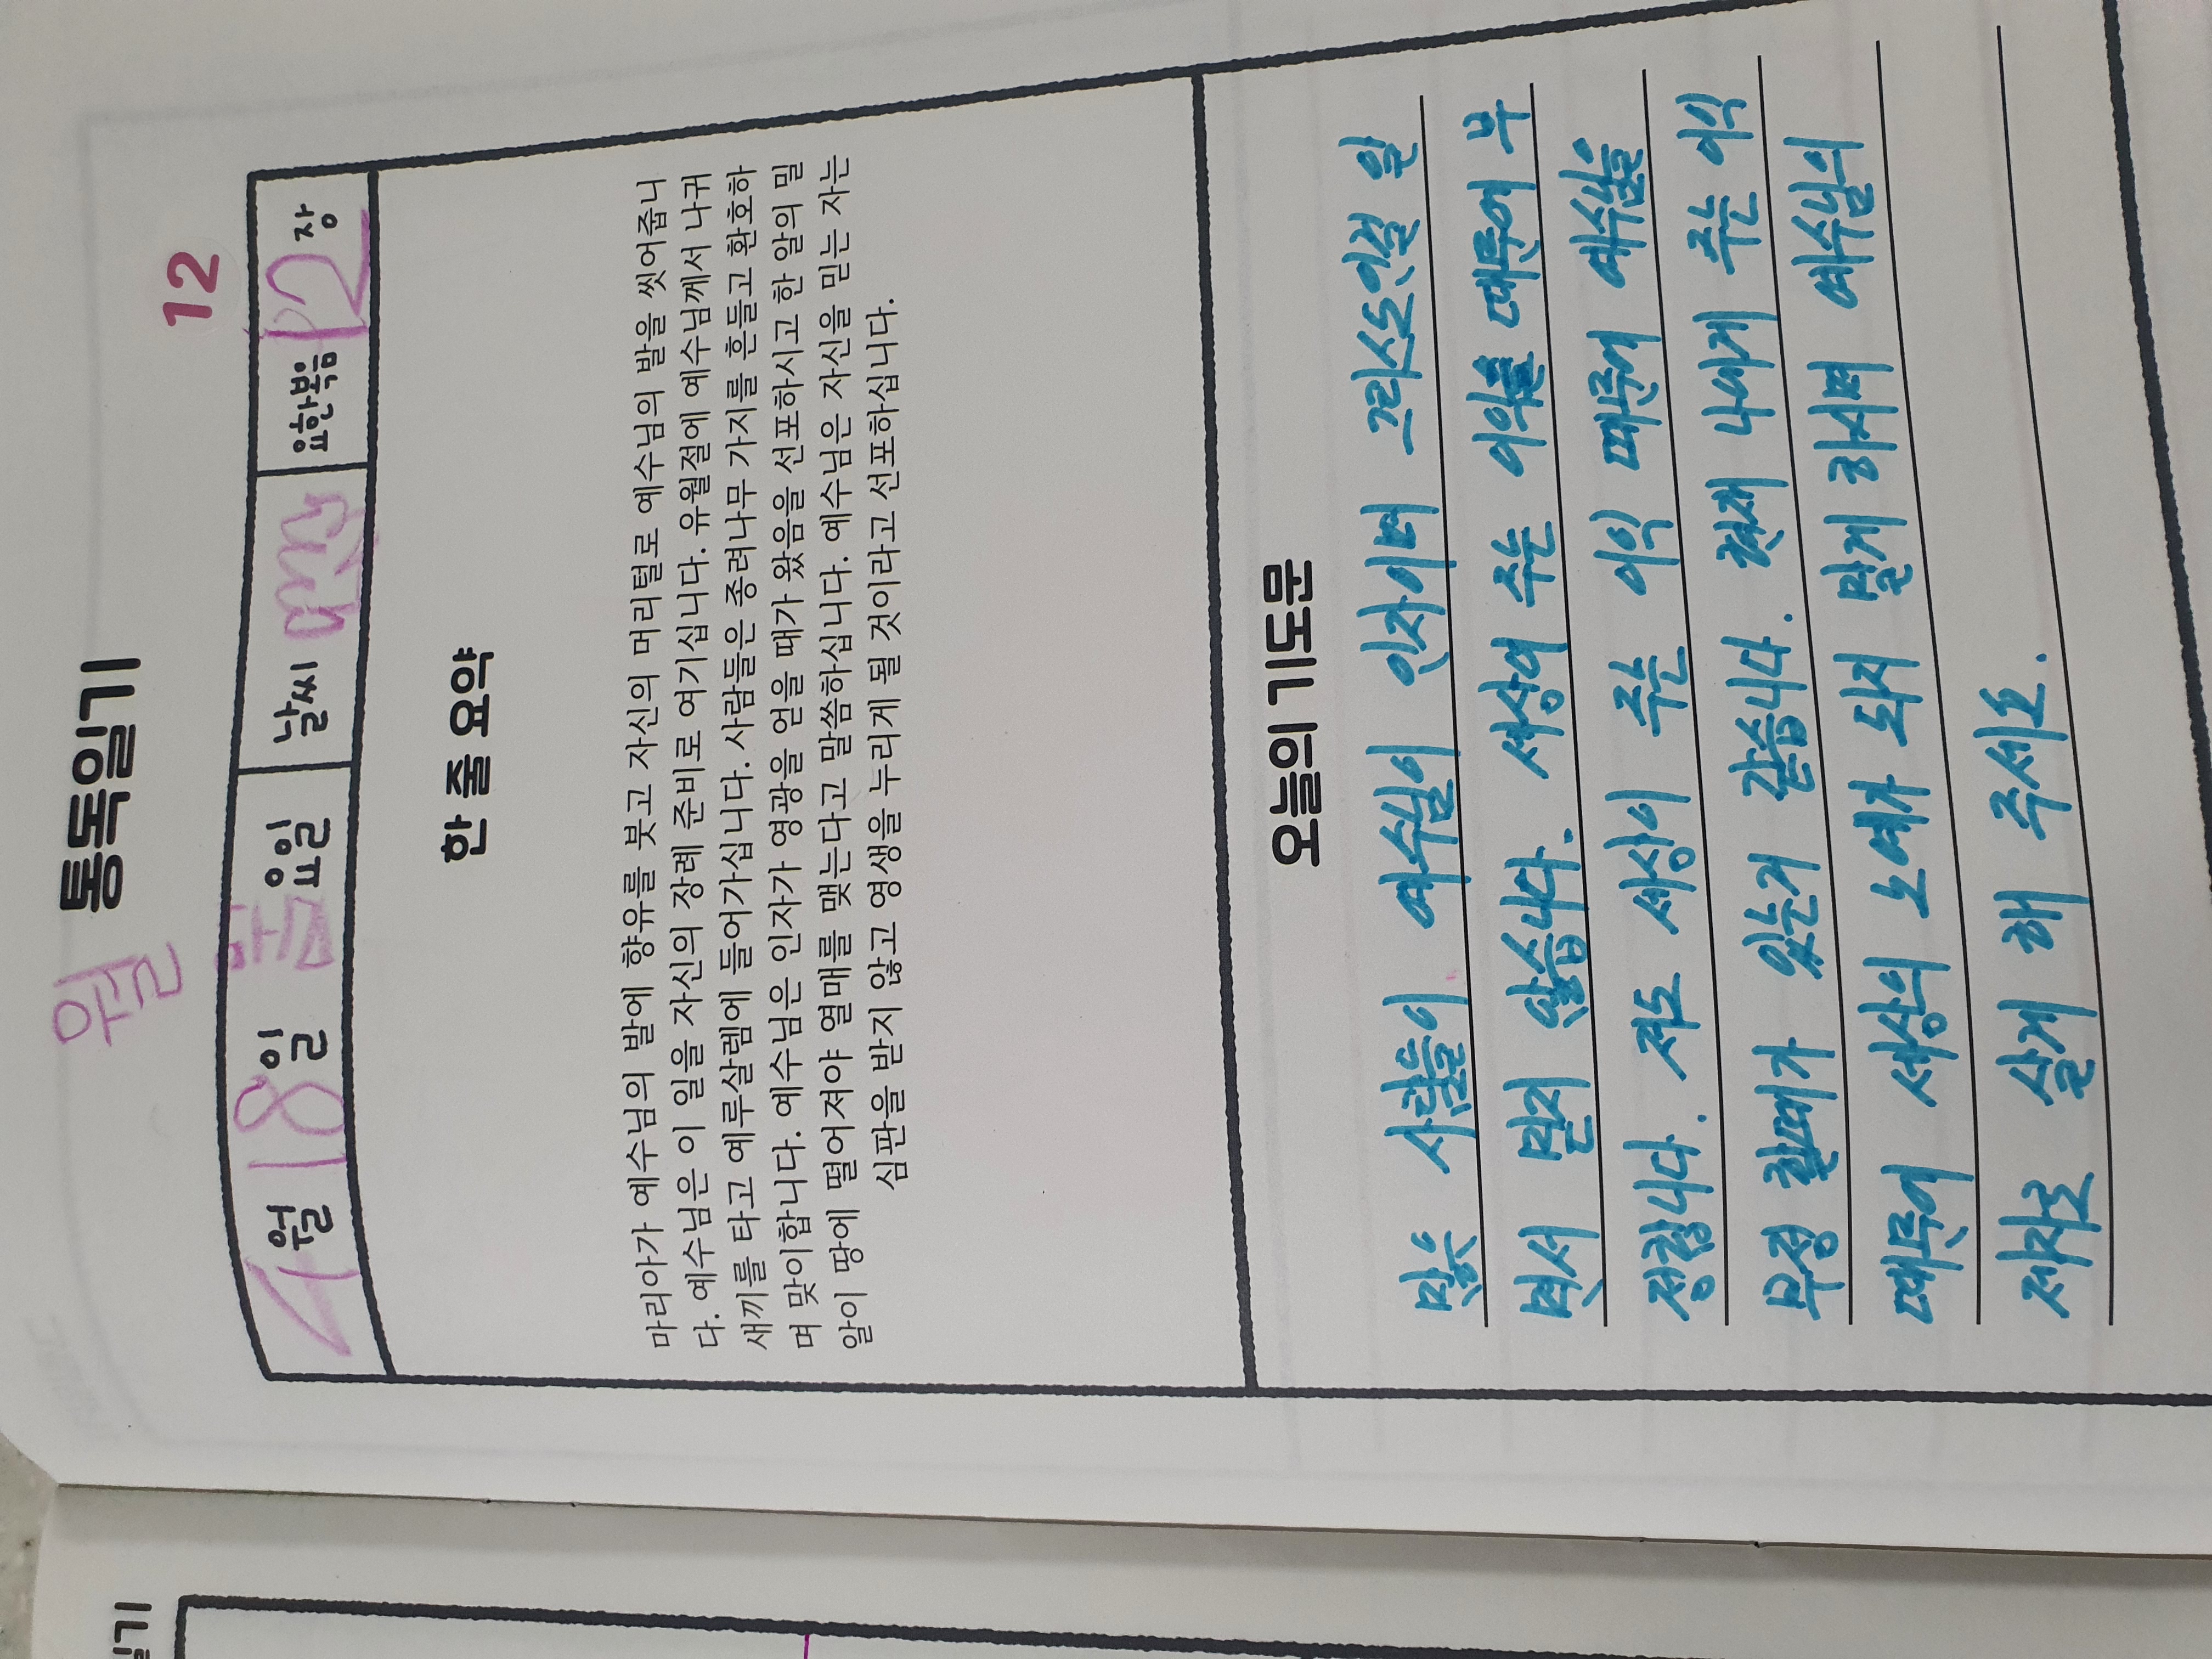 통독일기
월
12
4월 18일 요일 날씨 요한복음 12장
한 줄 요약
마리아가 예수님의 발에 향유를 붓고 자신의 머리털로 예수님의 발을 씻어줍니
다. 예수님은 이 일을 자신의 장례 준비로 여기십니다. 유월절에 예수님께서 나귀
새끼를 타고 예루살렘에 들어가십니다. 사람들은 종려나무 가지를 흔들고 환호하
며 맞이합니다. 예수님은 인자가 영광을 얻을 때가 왔음을 선포하시고 한 알의 밀
알이 땅에 떨어져야 열매를 맺는다고 말씀하십니다. 예수님은 자신을 믿는 자는
심판을 받지 않고 영생을 누리게 될 것이라고 선포하십니다.
오늘의 기도문
많은 사람들이 예수님이 인자이며 그리스도인걸 알
면서 믿지 않습니다. 세상에 주는 이익 때문에 부
정합니다. 저도 세상이 주는 이익 때문에 예수님을
부정 할때가 있는거 같습니다. 현재 나에게 주는 이익
때문에 세상의 노예가 되지 말게 하시며 예수님의
제자로 살게 해 주세요.
일기